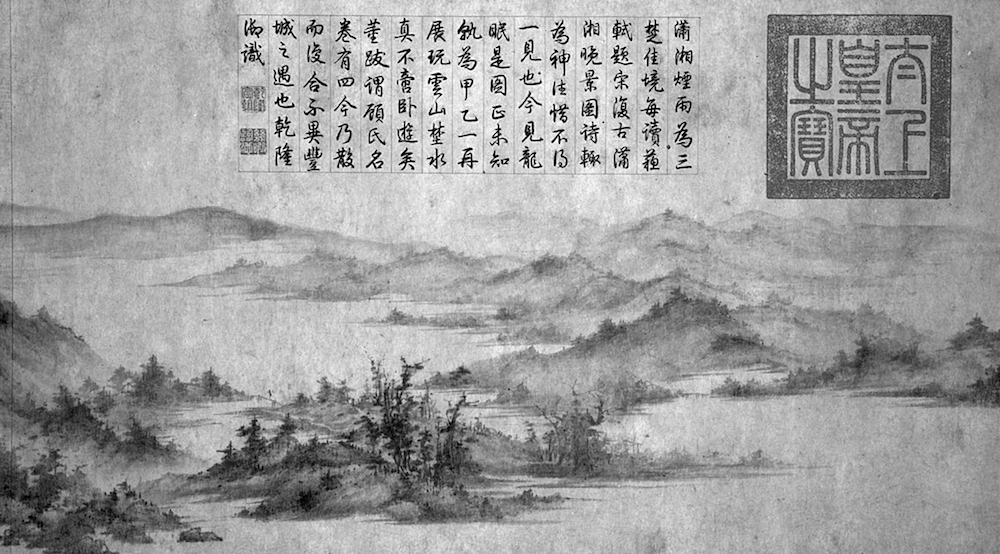 太上
皇帝
之寶
瀟湘煙雨為三
楚佳境每讀蘓
軾題宋復古瀟
湘晚景圖詩輙
為神往惜不得
一見也今見龍
眠是圖正未知
孰為甲乙一再
展玩雲山埜水
真不啻卧遊矣
董跋謂顧氏名
卷有四今乃散
而復合不異豐
城之遇也乾隆
御識